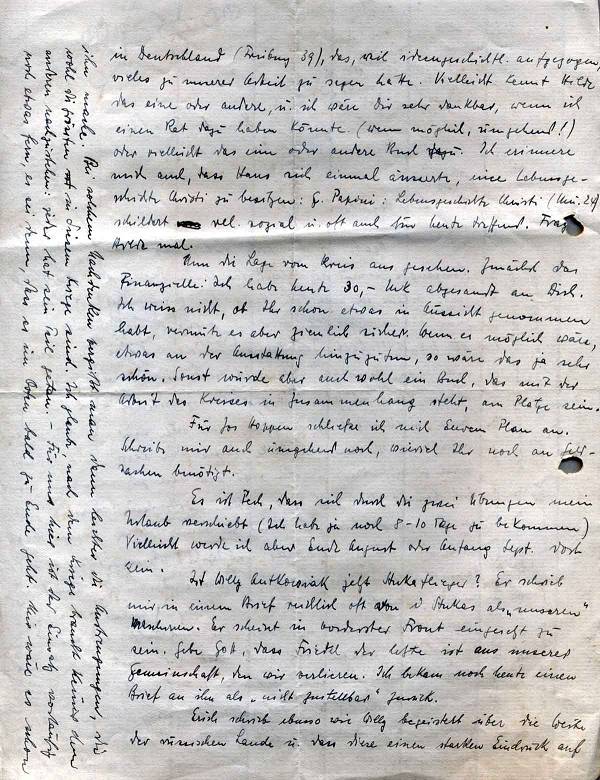 in Deutschland (Freiburg 39), das, weil ideengeschichtl. aufgezogen,
vieles zu unserer Arbeit zu sagen hatte. Vielleicht kennt Hilde
das eine oder andere, u. ich wäre Dir sehr dankbar, wenn ich
einen Rat dazu haben könnte. (wenn möglich, umgehend!)
oder vielleicht das eine oder andere Buch dazu. Ich erinnere
mich auch, dass Hans sich einmal äusserte, eine Lebensge-
schichte Christi zu besitzen: G. Papini: Lebensgeschichte Christi (Mü. 24)
schildert rel. sozial u. oft auch für heute treffend. Frag
Hilde mal.
Nun die Lage vom Kreis aus gesehen. Zunächst das
Finanzielle: Ich habe heute 30,- Mk abgesandt an Dich.
Ich weiss nicht, ob Ihr schon etwas in Aussicht genommen
habt, vermute es aber ziemlich sicher. Wenn es möglich wäre,
etwas an der Ausstattung hinzuzutun, so wäre das ja sehr
schön. Sonst würde aber auch wohl ein Buch, das mit der
Arbeit des Kreises in Zusammenhang steht, am Platze sein.
Für Jos Hoppen schliesse ich mich Eurem Plan an.
Schreib mir auch umgehend noch, wieviel Ihr noch an Geld-
sachen benötigt.
Es ist Pech, dass sich durch die zwei Übungen mein
Urlaub verschiebt (Ich habe ja noch 8-10 Tage zu bekommen)
Vielleicht werde ich aber Ende August oder Anfang Sept. dort
sein.
Ist Willy Antkowiak jetzt Stukaflieger? Er schrieb
mir in einem Brief reichlich oft von d Stukas als "unseren"
Maschinen. Er scheint in vorderster Front eingesetzt zu
sein. Gebe Gott, dass Friedel der letzte ist aus unserer
Gemeinschaft, den wir verlieren. Ich bekam noch heute einen
Brief an ihn als "nicht zustellbar" zurück.
Erich schrieb ebenso wie Willy begeistert über die Weite
der russischen Lande u. dass diese einen starken Eindruck auf
ihn mache. Bei solchem Nachdenken vergisst man dann leichter die Anstrengungen, die
wohl die grössten in diesem Kriege sind. Ich glaube nach dem Kriege braucht keiner dem
anderen nachzustehen: jeder hat sein Teil getan - Für uns hier ist der Einsatz vorläufig
noch etwas fern, es sei denn, dass es im Osten bald zu Ende geht. Mir wäre es schon